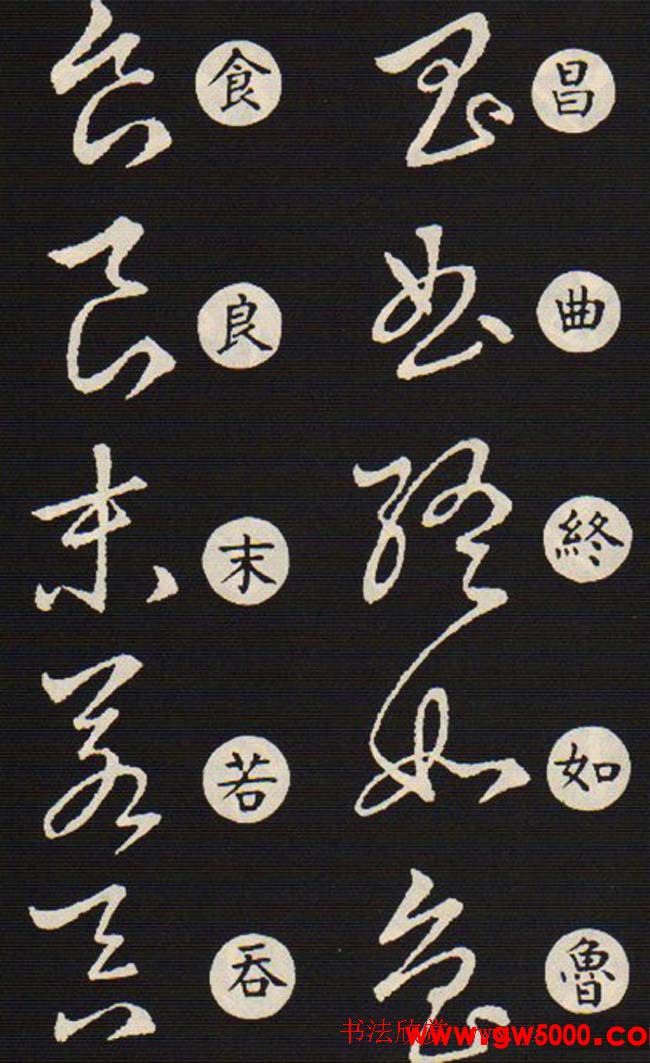 昌曲終如魯
食良末若吞
书法欣赏 www.gw5000.co